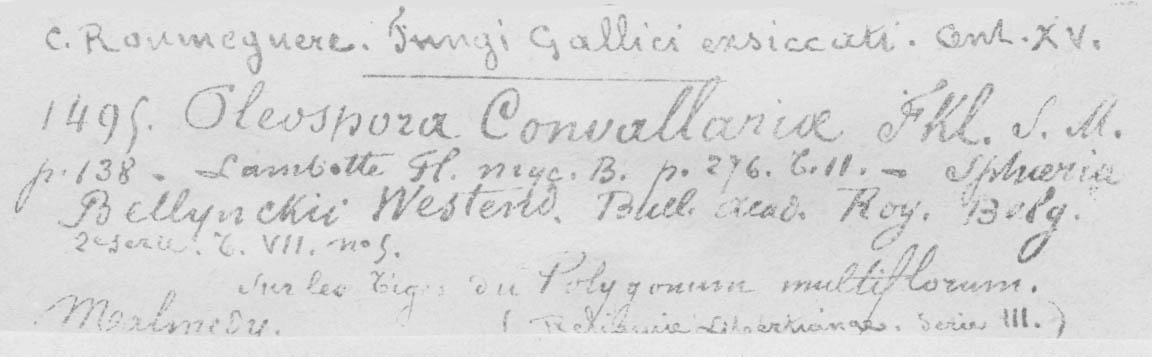 C. Roumeguere. Fungi Gallici exsiccati. Cent. XV.
1495. Pleospora Convallariæ Fkl. S. M.
p. 138 - Lambotte Fl. myc. B. p. 276. T. 11. - Sphæria
Bellynckii Westend. Bull. Acad. Roy. Belg.
2e serie. T. VII. no 5.
Sur les tiges du Polygonum multiflorum.
Malmedy. (Reliquiæ Libertianæ. Serie III.)